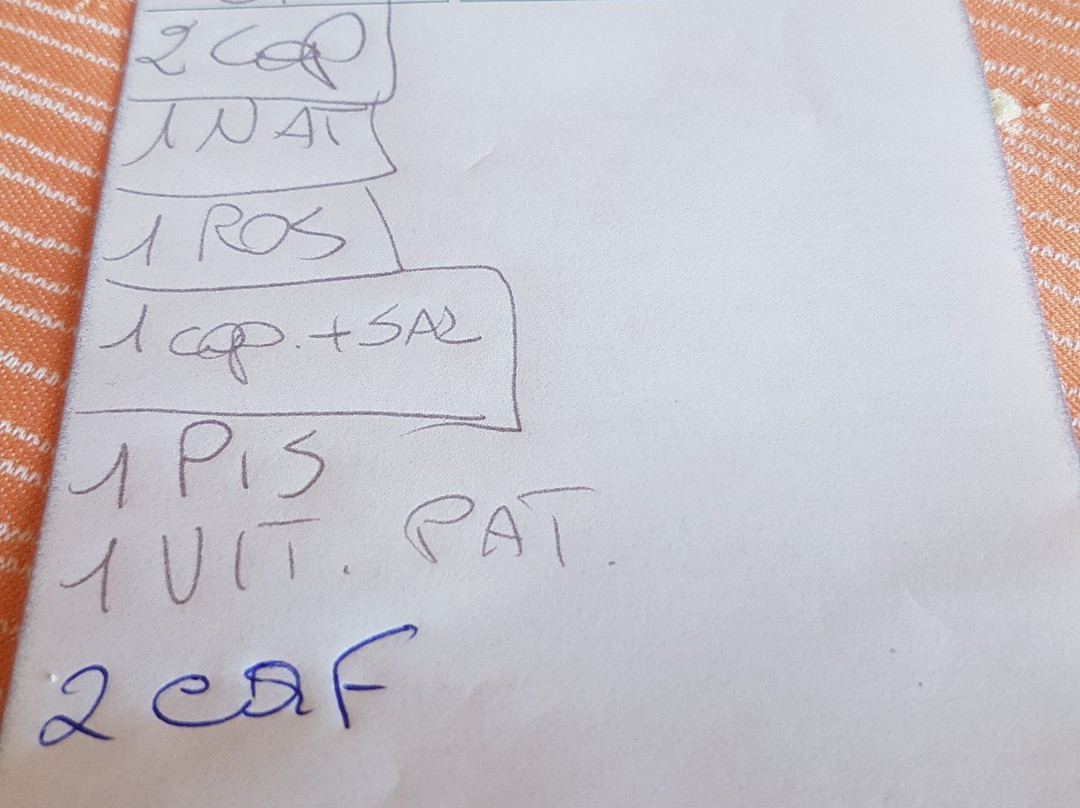 2 cap
1 NAT
1 ROS
1 cap. + SAL
1 PIS
1 VIT. PAT.
2 caF